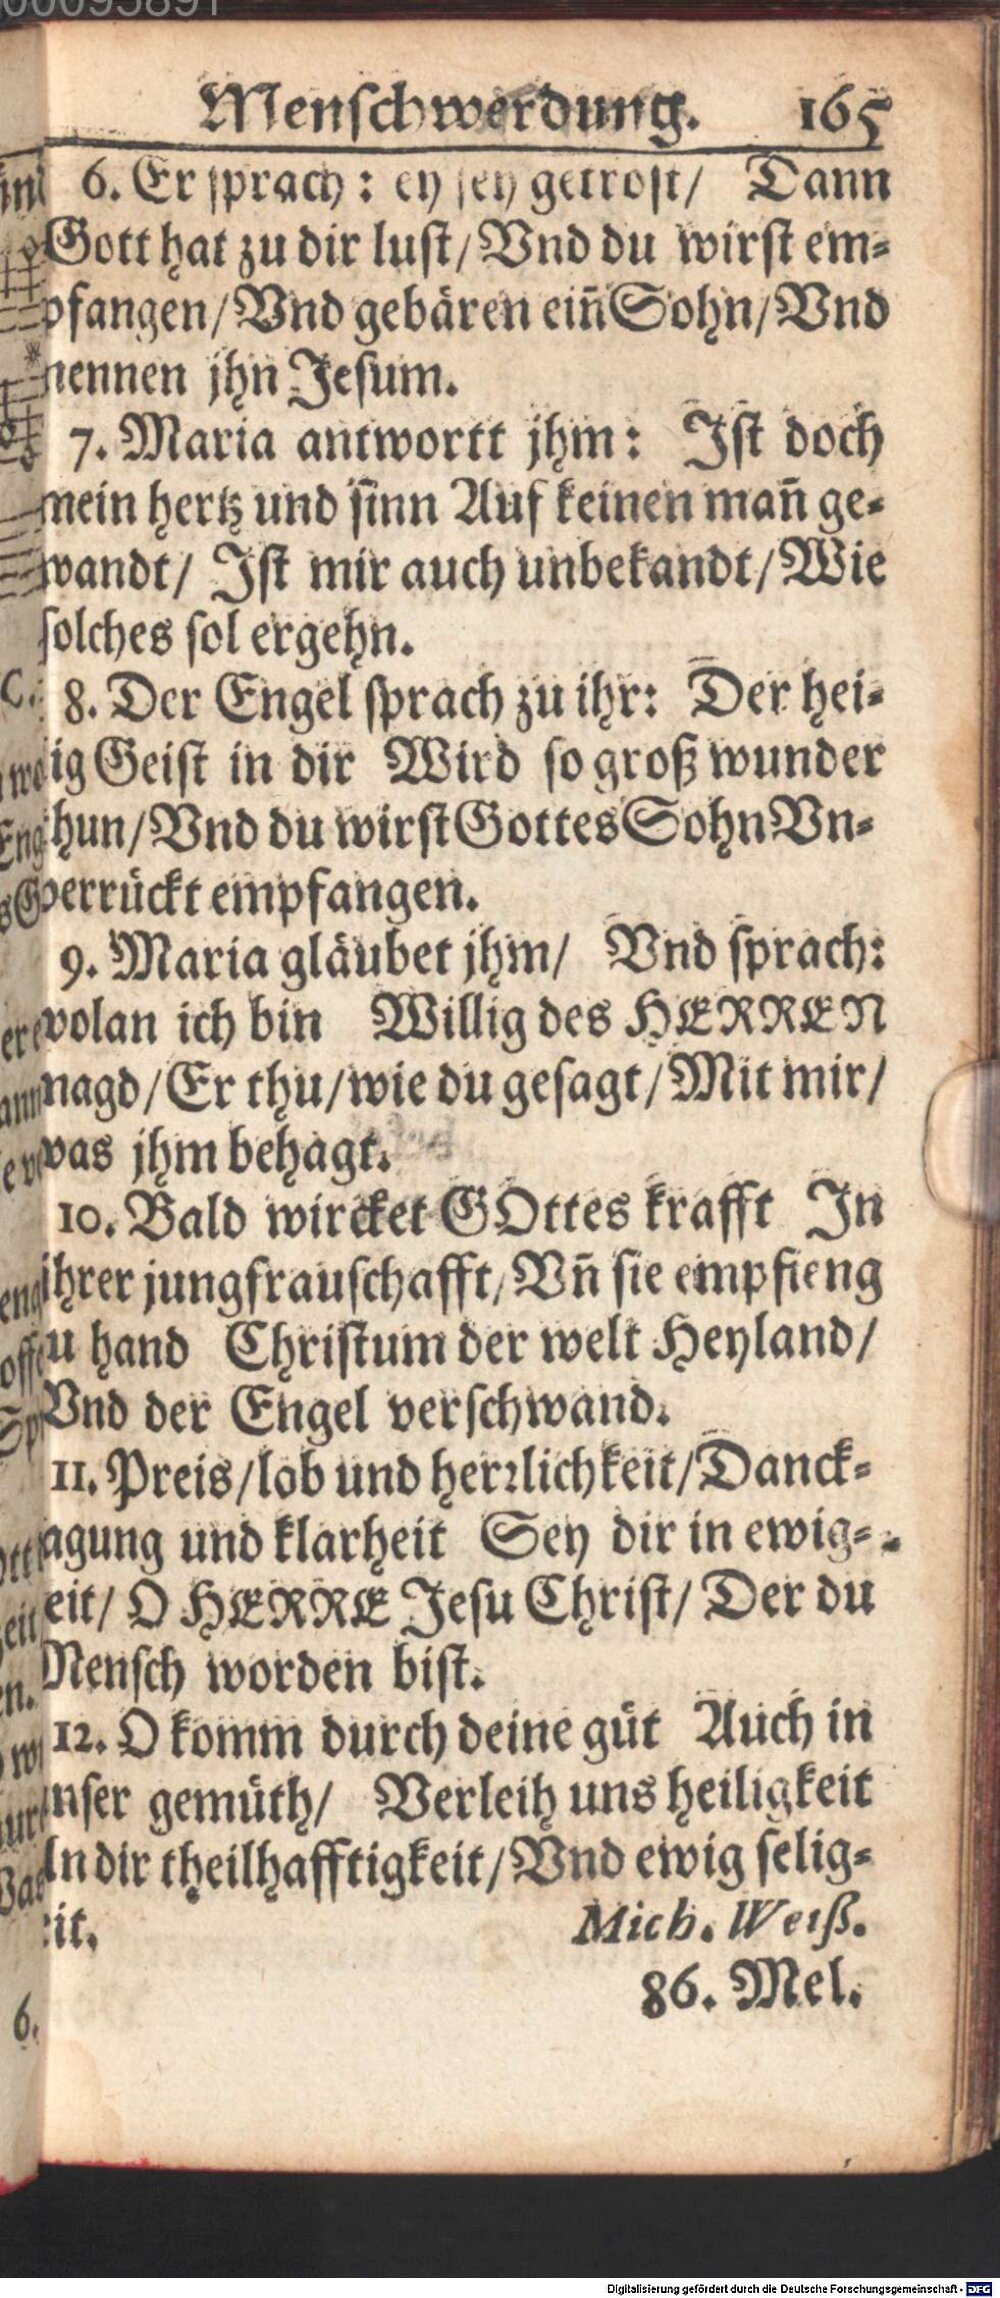 Menschwerdung. 165
6. Er sprach: ey sey getrost/ Dann
Gott hat zu dir lust/ Vnd du wirst em-
pfangen/ Vnd gebären eiñ Sohn/ Vnd
nennen jhn Jesum.
7. Maria antwortt jhm: Ist doch
mein hertz und sinn Auf keinen mañ ge-
wandt/ Ist mir auch unbekandt/ Wie
solches sol ergehn.
8. Der Engel sprach zu ihr: Der hei-
lig Geist in dir Wird so groß wunder
thun/ Vnd du wirst Gottes Sohn Vn-
verrückt empfangen.
9. Maria gläubet jhm/ Vnd sprach:
wolan ich bin Willig des HERREN
magd/ Er thu/ wie du gesagt/ Mit mir/
was jhm behagt.
10. Bald wircket GOttes krafft In
ihrer jungfrauschafft/ Vñ sie empfieng
zu hand Christum der welt Heyland/
Vnd der Engel verschwand.
11. Preis/ lob und herꝛlichkeit/ Danck-
sagung und klarheit Sey dir in ewig-
keit/ O HERRE Jesu Christ/ Der du
Mensch worden bist.
12. O komm durch deine güt Auch in
unser gemüth/ Verleih uns heiligkeit
In dir theilhafftigkeit/ Vnd ewig selig-
keit. Mich. Weiß.
86. Mel.
Digitalisierung gefördert durch die Deutsche Forschungsgemeinschaft - DFG